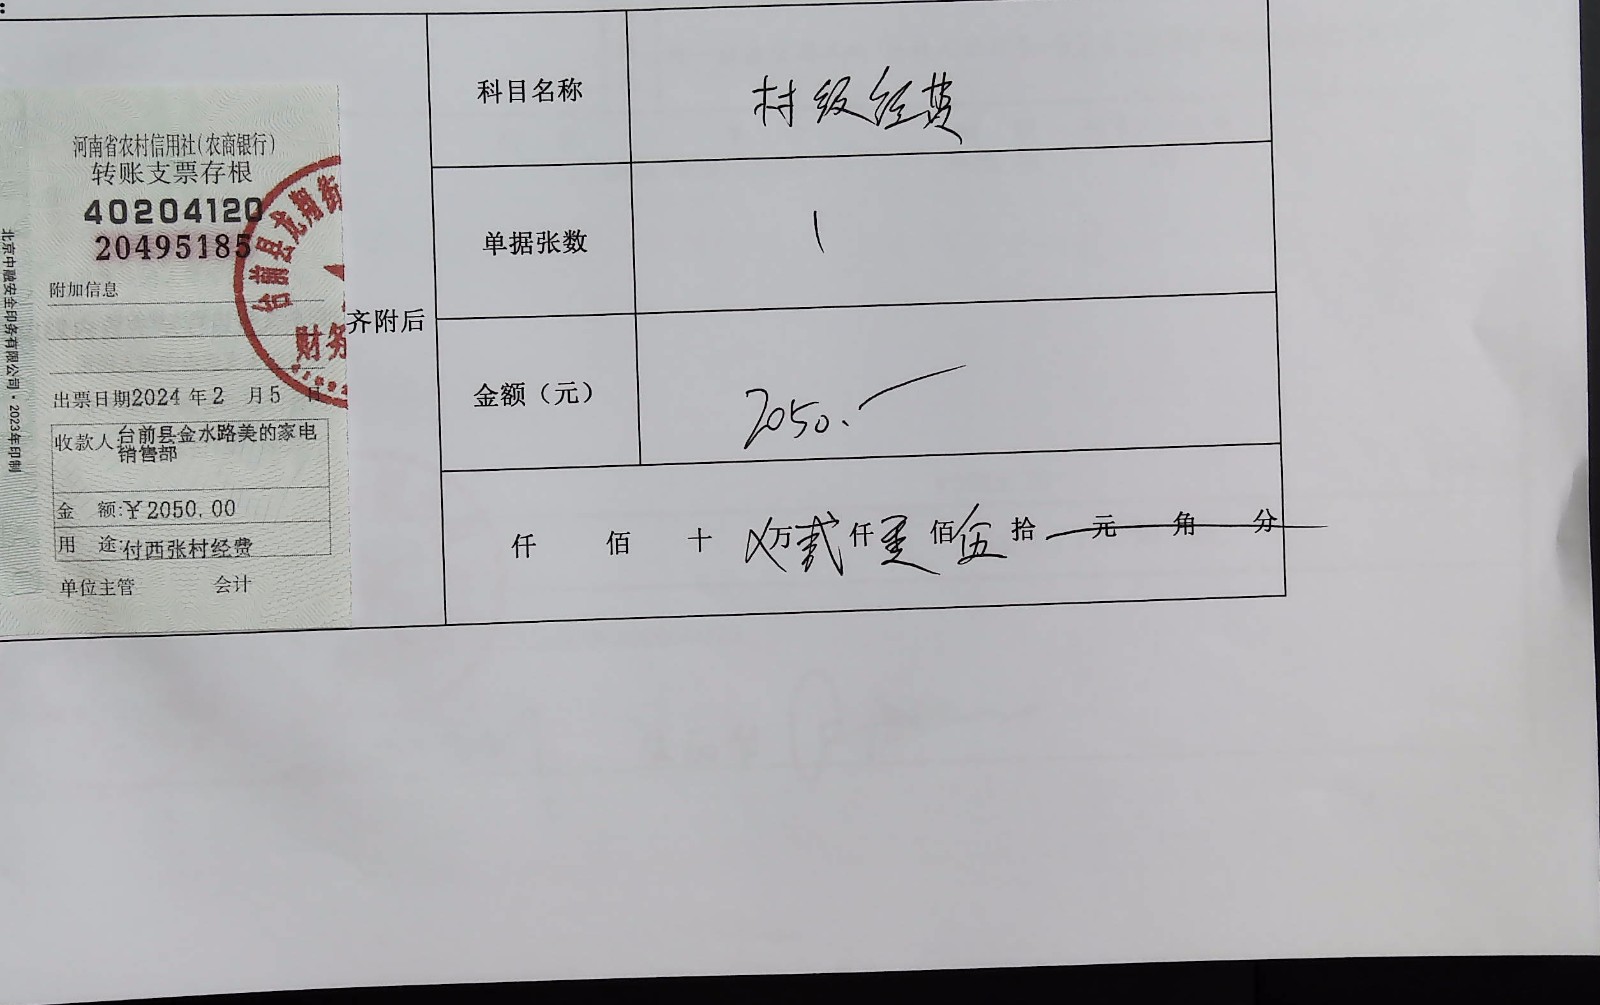 :
河南省农村信用社(农商银行)
转账支票存根
40204120
20495185
附加信息
出票日期2024年2月5日
收款人 台前县金水路美的家电
销售部
金 额:¥2050.00
用 途:付西张村经费
单位主管 会计
北京中融安全印务有限公司·2023年印制
台前县龙翔街
财务
齐附后
科目名称 村级经费
单据张数 1
金额（元） 2050.
仟 佰 十 乂万贰仟零佰伍拾 元 角 分